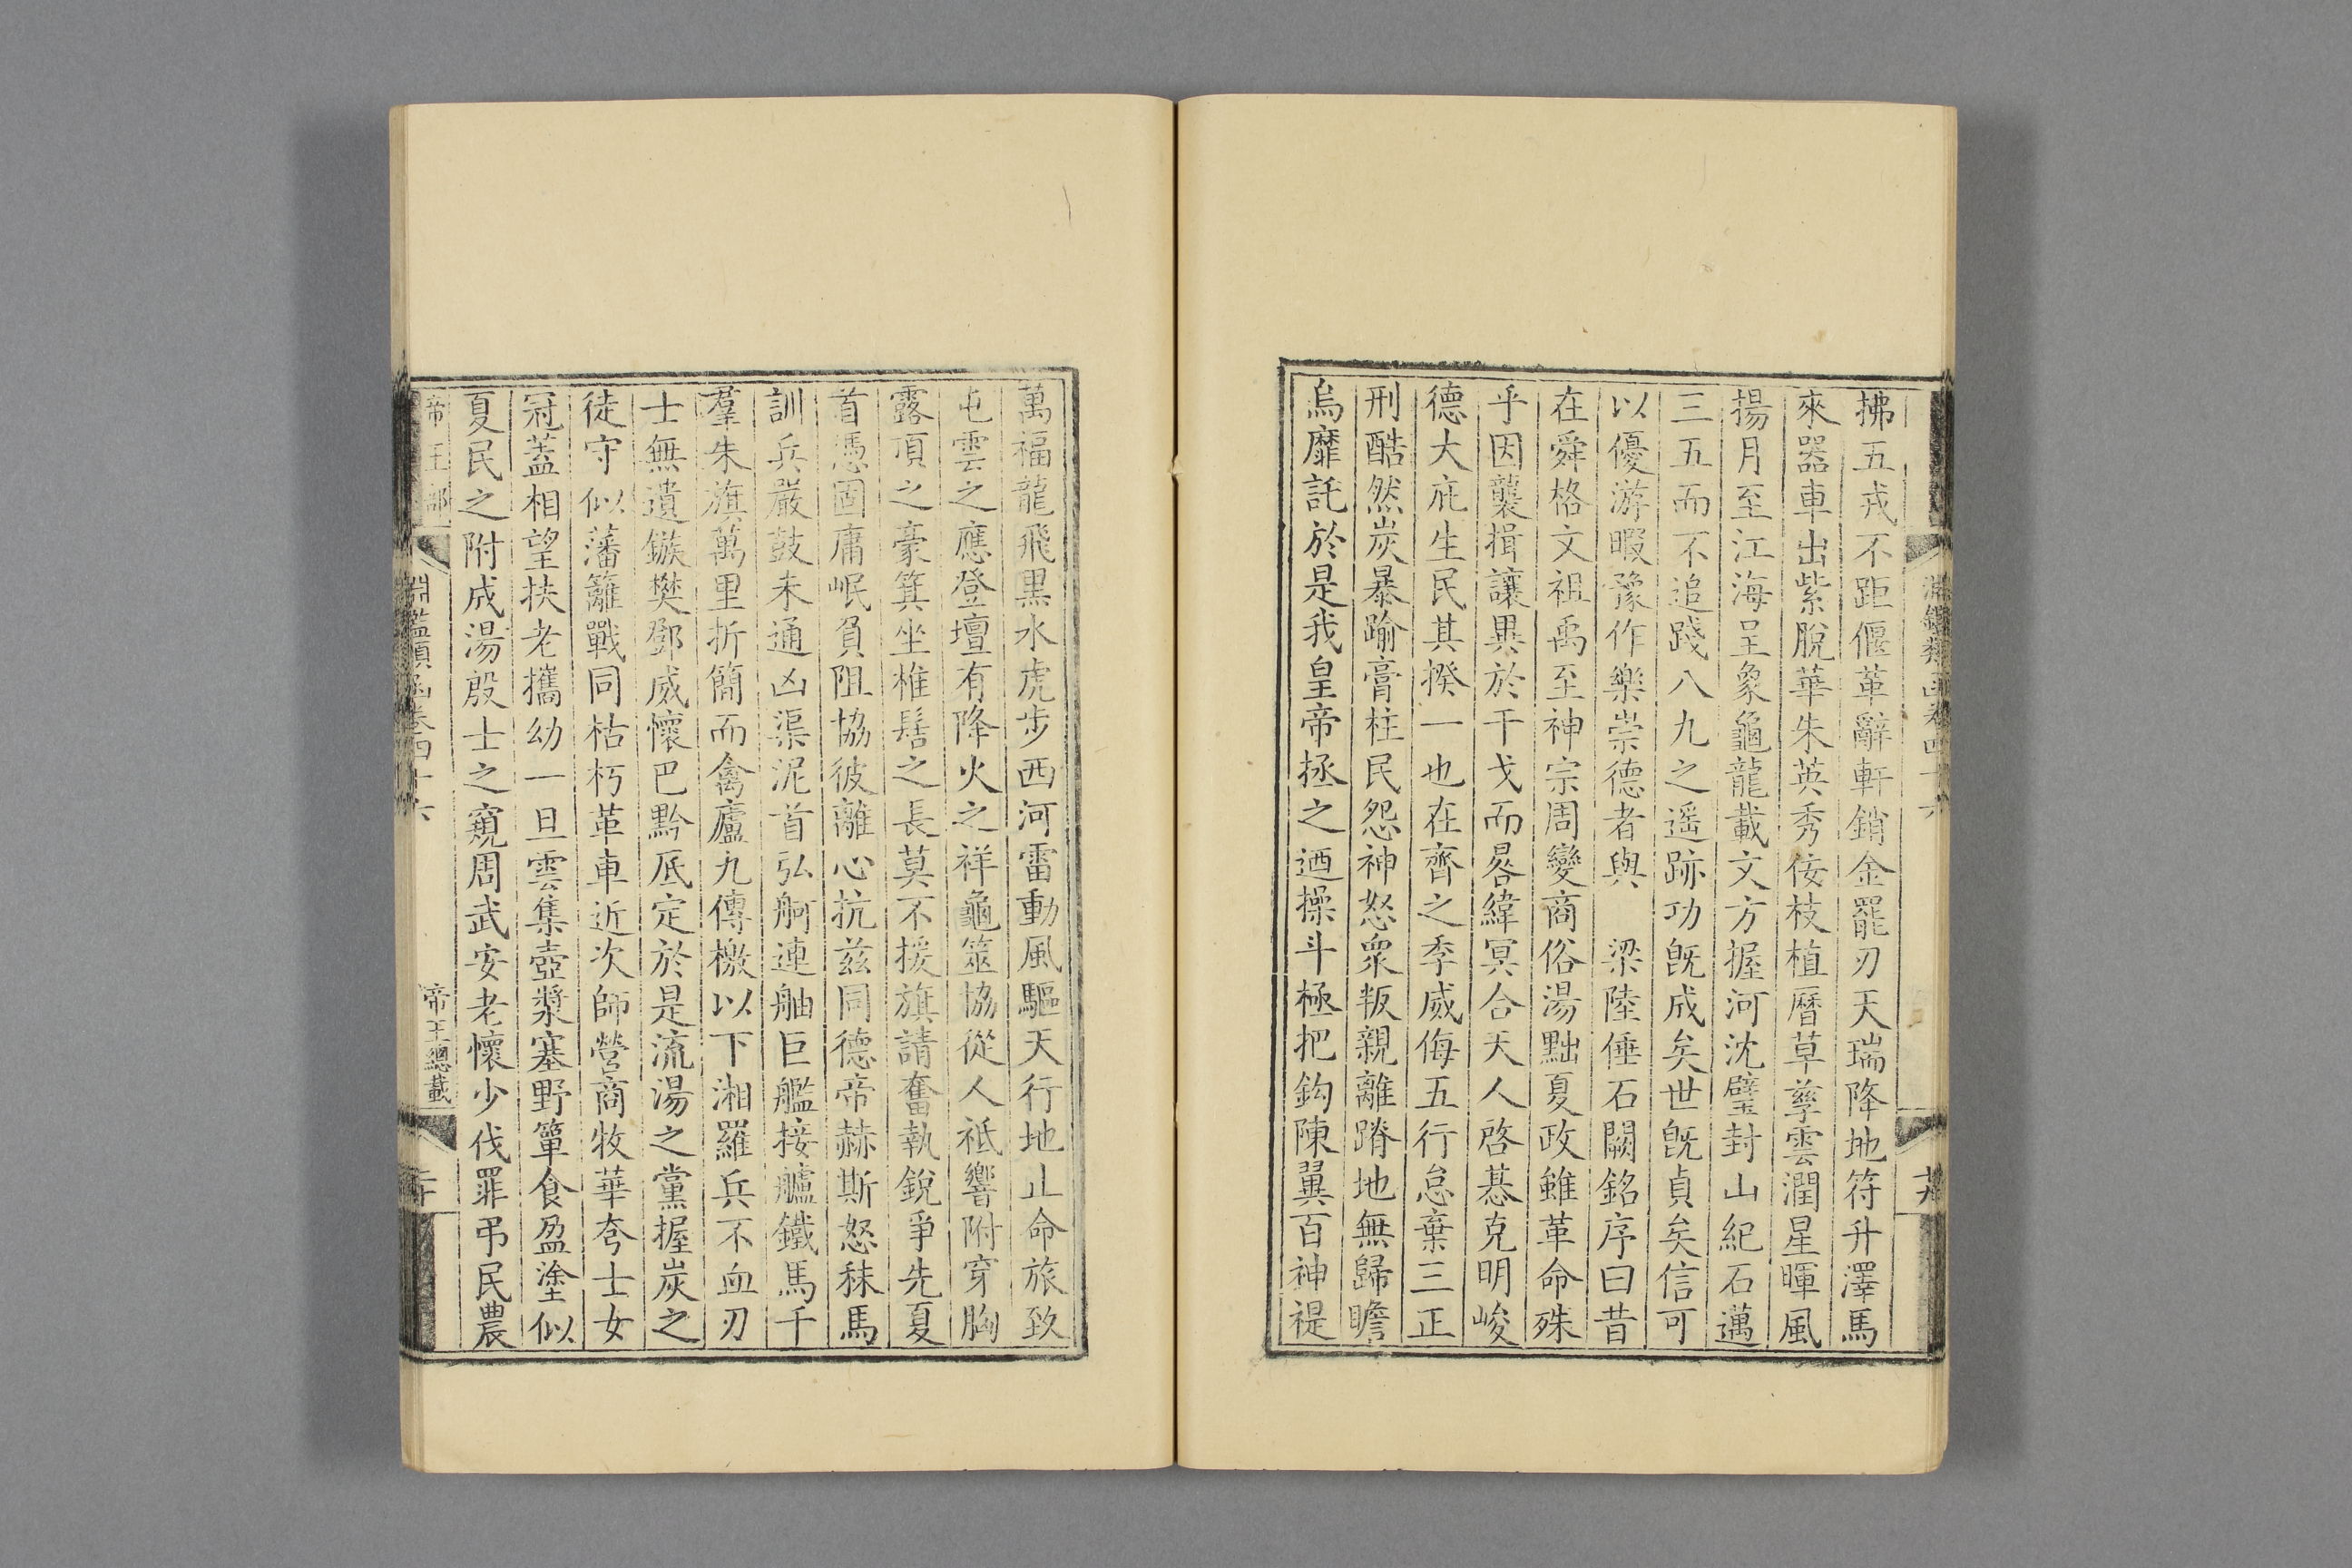 拂五戎不距偃革辭軒銷金罷刃天瑞降地符升澤馬
來器車出紫脫華朱英秀佞枝植曆草孳雲潤星暉風
揚月至江海呈象龜龍載文方握河沈璧封山紀石邁
三五而不追踐八九之遥跡功旣成矣世旣貞矣信可
以優游暇豫作樂崇德者與　梁陸倕石闕銘序曰昔
在舜格文祖禹至神宗周變商俗湯黜夏政雖革命殊
乎因襲揖讓異於干戈而晷緯冥合天人啓惎克明峻
德大庇生民其揆一也在齊之季威侮五行怠棄三正
刑酷然炭暴踰膏柱民怨神怒衆叛親離蹐地無歸瞻
烏靡託於是我皇帝拯之迺操斗極把鈎陳翼百神禔
萬福龍飛黑水虎步西河雷動風驅天行地止命旅致
屯雲之應登壇有降火之祥龜筮協從人祇響附穿胸
露頂之豪箕坐椎髻之長莫不援旗請奮執銳爭先夏
首憑固庸岷負阻協彼離心抗兹同德帝赫斯怒秣馬
訓兵嚴鼓未通凶渠泥首弘舸連舳巨艦接艫鐵馬千
羣朱旗萬里折簡而禽廬九傳檄以下湘羅兵不血刃
士無遺鏃樊鄧威懷巴黔底定於是流湯之黨握炭之
徒守似藩籬戰同枯朽革車近次師營商牧華夸士女
冠蓋相望扶老攜幼一旦雲集壺漿塞野簞食盈塗似
夏民之附成湯殷士之窺周武安老懷少伐罪弔民農
帝王部
淵鑑類函卷四十六
帝王總載